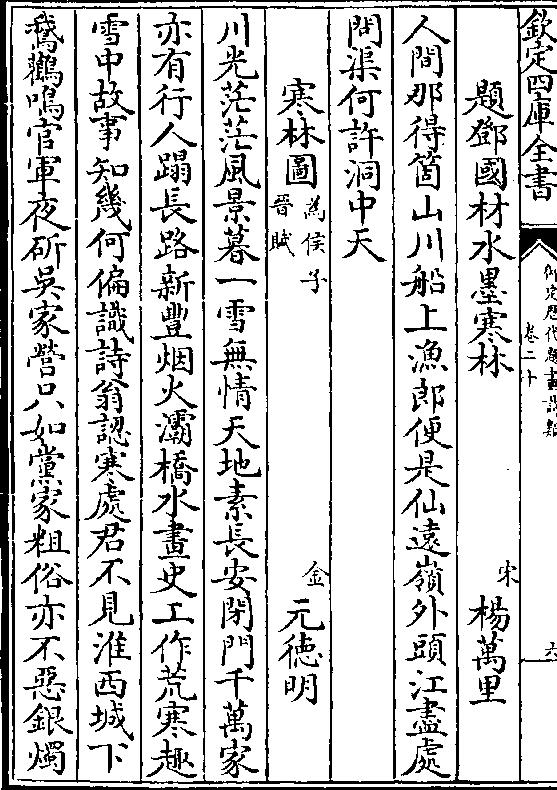 欽定四庫全書
御定歷代題畫詩類
卷二十
六
題鄧國材水墨寒林
宋 楊萬里
人間那得箇山川船上漁郎便是仙遠嶺外頭江盡處
問渠何許洞中天
寒林圖 為侯子晉賦
金 元徳明
川光茫茫風景暮一雪無情天地素長安閉門千萬家
亦有行人蹋長路新豐烟火灞橋水畫史工作荒寒趣
雪中故事知幾何偏識詩翁認寒處君不見淮西城下
鵞鸛鳴官軍夜斫吳家營只如黨家粗俗亦不惡銀燭